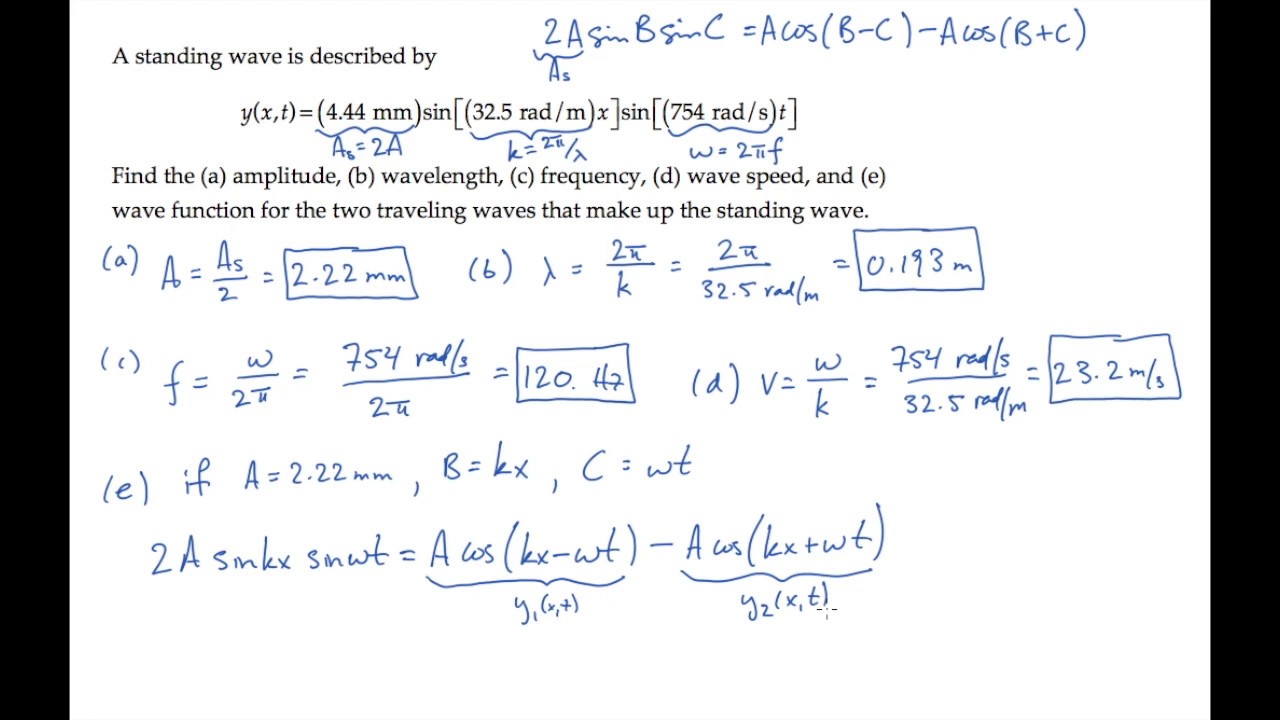 2A sin B sin C = A cos(B-C) - A cos(B+C)
A_s
A standing wave is described by
y(x,t)=(4.44 mm)sin[(32.5 rad/m)x]sin[(754 rad/s)t]
A_s = 2A k = 2π/λ ω = 2πf
Find the (a) amplitude, (b) wavelength, (c) frequency, (d) wave speed, and (e)
wave function for the two traveling waves that make up the standing wave.
(a) A = A_s/2 = 2.22 mm (b) λ = 2π/k = 2π/32.5 rad/m = 0.193 m
(c) f = ω/2π = 754 rad/s/2π = 120. Hz (d) v = ω/k = 754 rad/s/32.5 rad/m = 23.2 m/s
(e) if A = 2.22 mm, B = kx, C = ωt
2A sin kx sin ωt = A cos(kx-ωt) - A cos(kx+ωt)
y₁(x,t) y₂(x,t)